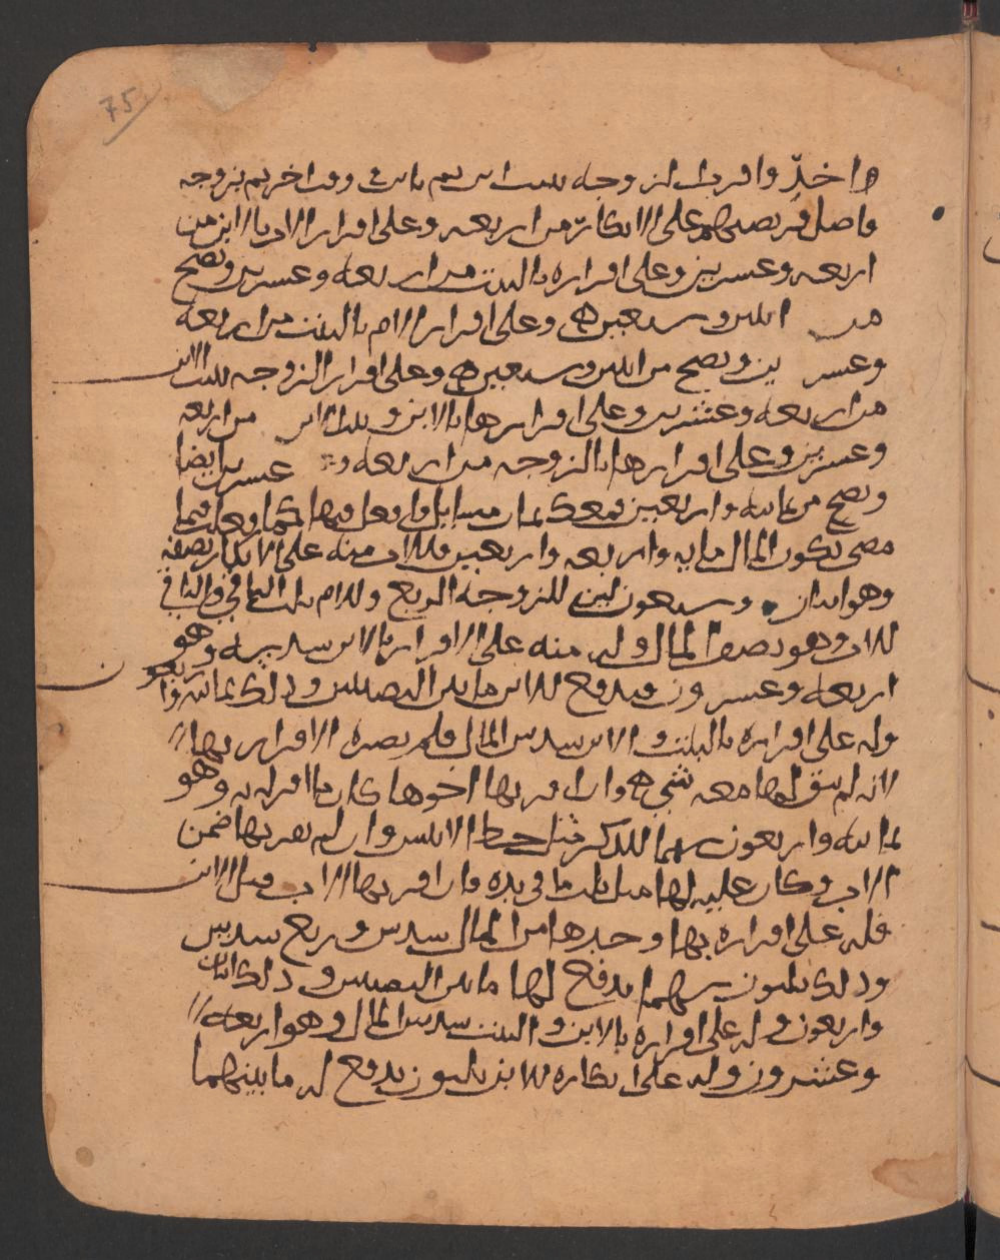 75
واحد واقرت الزوجه ببنت ابن ثم باب في وقت اخر ثم بزوجه
فاصل فريضتهم على الانكار من اربعه وعلى اقرار الاب بالابن من
اربعه وعشرين وعلى اقراره بالبنت من اربعه وعشرين وتصح
من اثنين وسبعين وعلى اقرار الام بالبنت من اربعه
وعشرين وتصح من اثنين وسبعين وعلى اقرار الزوجه ببنت الابن
من اربعه وعشرين وعلى اقرارها بالابن وبنت ابن من اربعه
وعشرين وعلى اقرارها بالزوجه من اربعه وعشرين ايضا
وتصح من ثمانيه واربعين فمعك ثمان مسايل فافعل فيها كما فعلت فيما
مضى يكون المال مايه واربعه واربعين فللاب منه على الانكار نصفه
وهو اثنان وسبعون للزوجه الربع وللام ثلث الباقي والباقي
للاب وهو نصف المال وله منه على الاقرار بالابن سدسه وهو
اربعه وعشرون فيدفع للابن ما بين النصيبين وذلك ثمانيه واربعون
وله على اقراره بالبنت والابن سدس المال فلم يضره الاقرار بها
لانه لم يبق لها معه شي وان اقر بها اخوها كان ما اقر له به وهو
ثمانيه واربعون بينهما للذكر مثل حظ الانثيين وان لم يقر بها ضمن
الاب وكان عليه لها مثل ثلث ما في يده وان اقر بها الاب قبل الابن
فله على اقراره بها وحدها من المال سدس وربع سدس
وذلك ثلثون سهما يدفع لها ما بين النصيبين وذلك اثنان
واربعون وله على اقراره بالابن والبنت سدس المال وهو اربعه
وعشرون وله على انكاره للابن ثلثون يدفع له ما بينهما